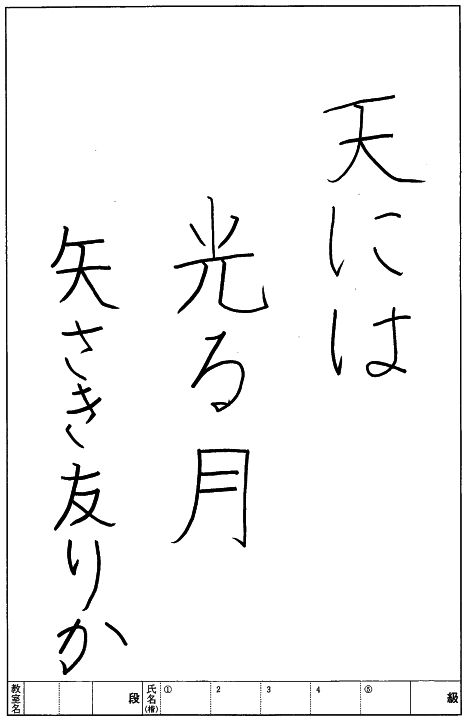 天には
光る月
矢さき友りか
教室名 段 氏名(楷) ① 2 3 4 ⑤ 級